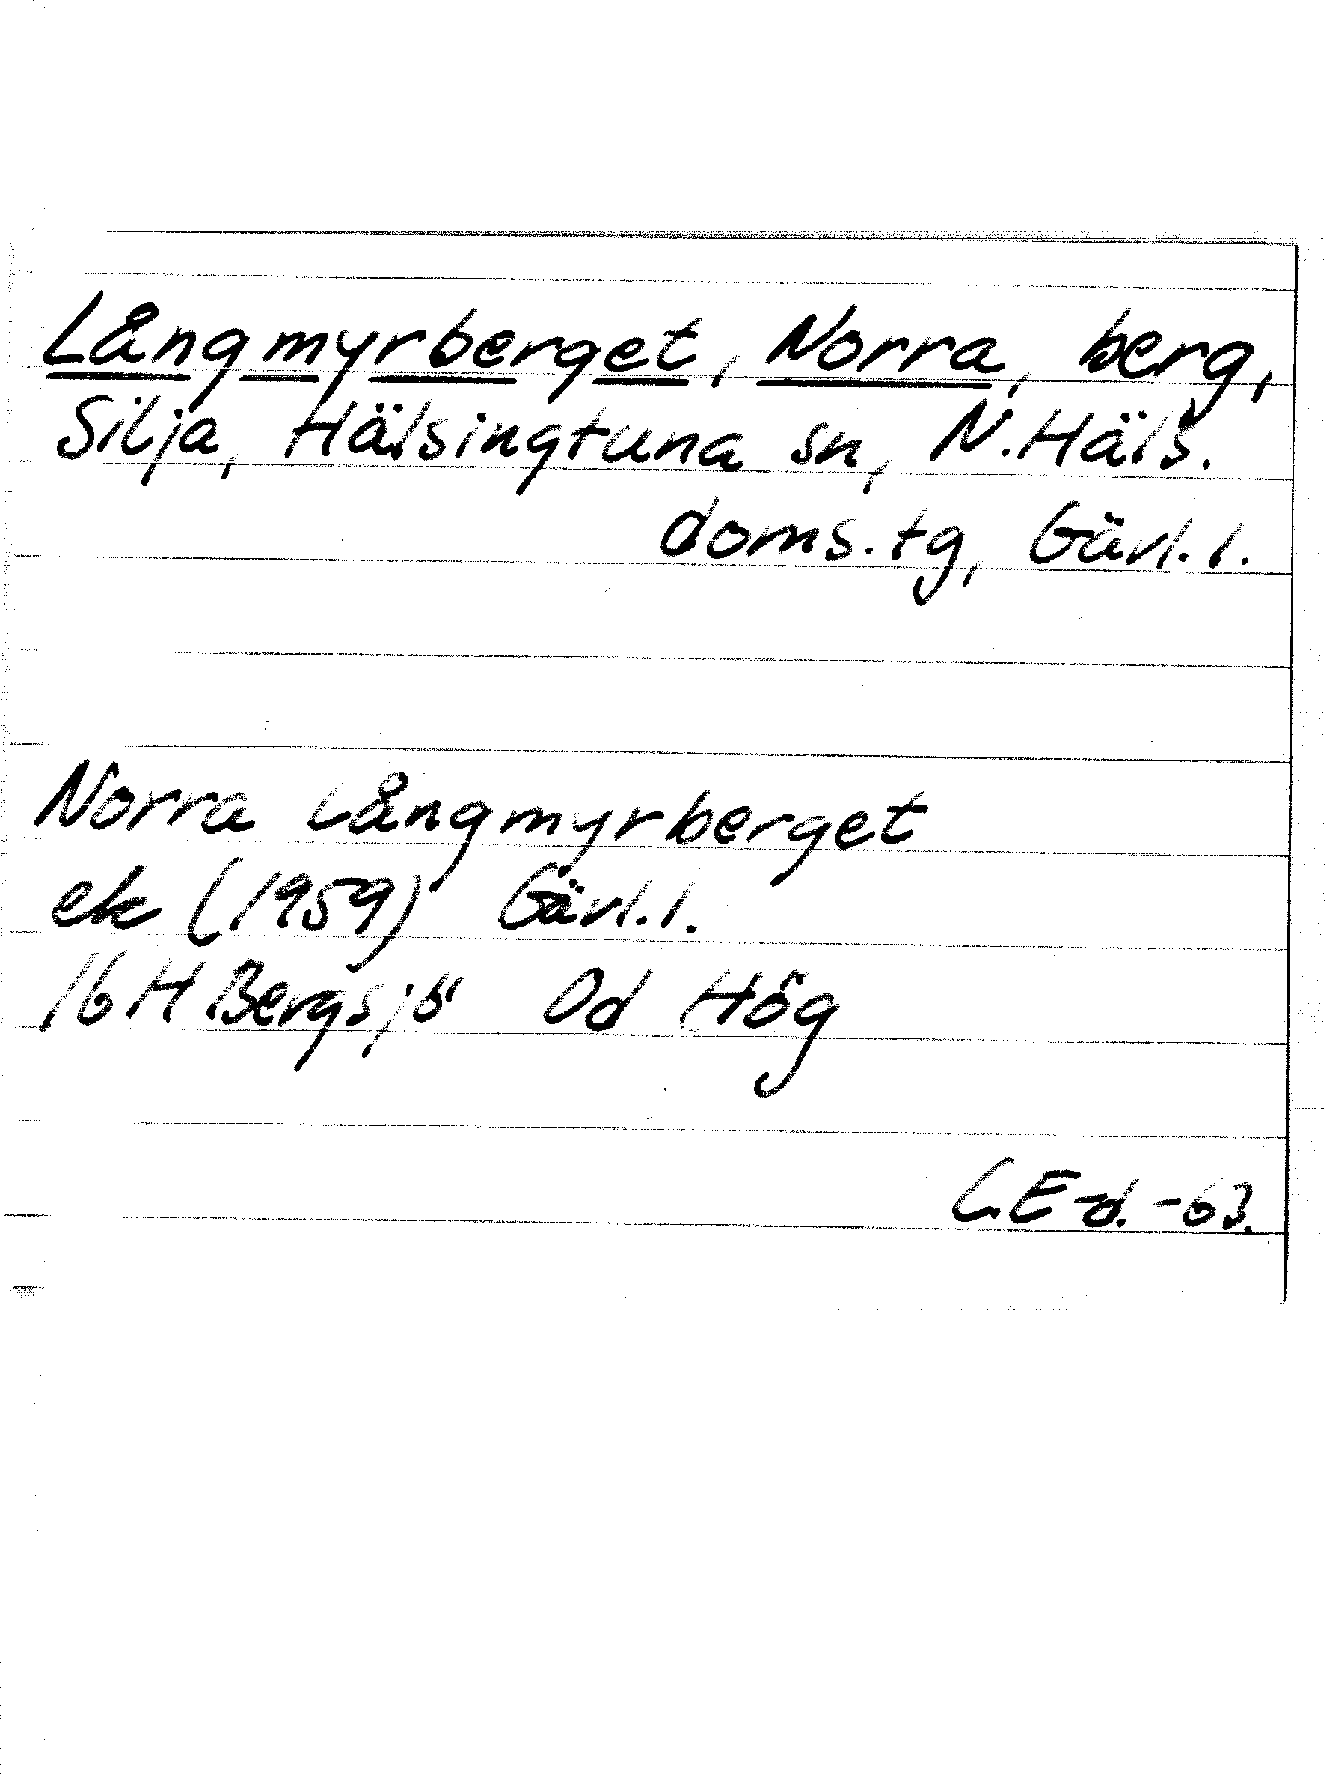 Långmyrberget, Norra, berg,
Silja, Hälsingtuna sn, N.Häls.
doms.tg, Gävl.l.
Norra Långmyrberget
ek (1959) Gävl.l.
16H Bergsjö 0d Hög
L.E-d. -63.